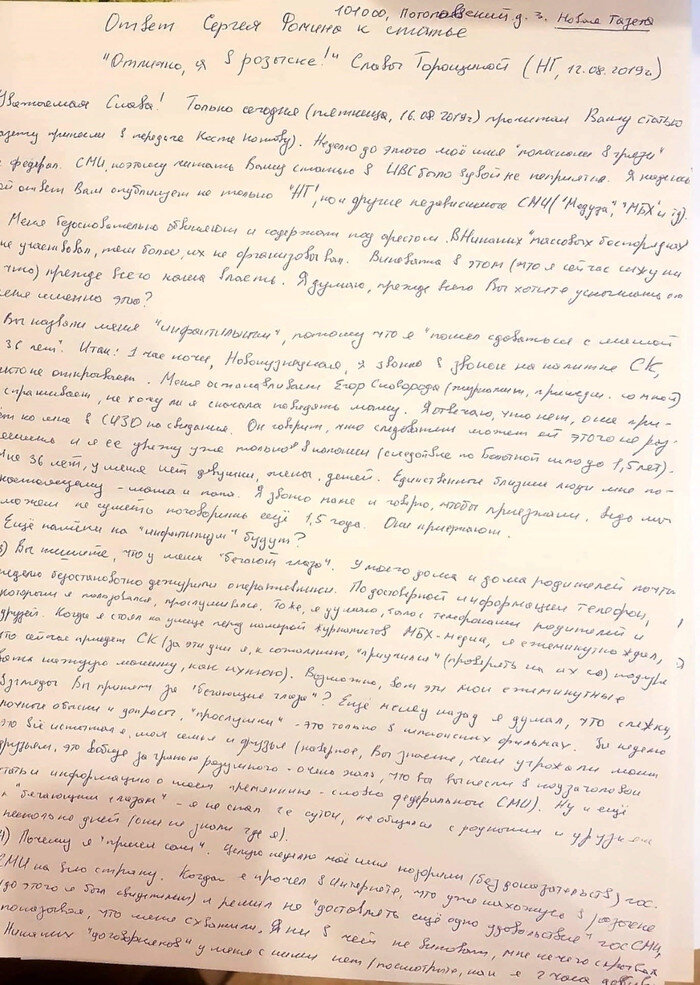 101000, Потаповский д. 3. Новая Газета
Ответ Сергея Фомина к статье
"Отлично, я в розыске!" Славы Торощиной (НГ, 12.08.2019г)
Уважаемая Слава! Только сегодня (пятница, 16.08.2019г) прочитал Вашу статью
газету принесли в передаче Косте Котову). Неделю до этого моё имя "полоскали в грязи"
федерал. СМИ, поэтому читать Вашу статью в ИВС было вдвойне неприятно. Я надеюсь
ой ответ Вам опубликует не только "НГ", но и другие независимые СМИ ("Медуза", "МБХ" и тд).
Меня безосновательно обвиняют и содержат под арестом. В никаких "массовых беспорядках"
не участвовал, тем более, их не организовывал. Виновата в этом (что я сейчас сижу ни
что) прежде всего наша власть. Я думаю, прежде всего Вы хотите услышать от
меня именно это?
Вы назвали меня "инфантильным", потому что я "пошел сдаваться с мамой
36 лет". Итак: 1 час ночи, Новокузнецкая, я звоню в звонок на калитке СК,
никто не открывает. Меня останавливает Егор Сковорода (журналист, приехал со мной)
спрашивает, не хочу ли я сначала повидать маму. Я отвечаю, что нет, она при-
ет ко мне в СИЗО на свидание. Он говорит, что следователи может ей этого не раз-
решить и я ее увижу уже только в колонии (следствие по Болотной шло до 1,5 лет).
Мне 36 лет, у меня нет девушки, жены, детей. Единственные близкие люди мне по-
настоящему - мама и папа. Я звоню папе и говорю, чтобы приезжали, ведь мы
можем не суметь поговорить ещё 1,5 года. Они приезжают.
Ещё намёки на "инфантилизм" будут?
3) Вы пишите, что у меня "бегают глаза". У моего дома и дома родителей почти
неделю безостановочно дежурили оперативники. По достоверной информации телефон,
которым я пользовался, прослушивался. Тоже, я думаю, было с телефонами родителей и
друзей. Когда я стоял на улице перед камерой журналистов МБХ-медиа, я ежеминутно ждал,
что сейчас приедет СК (за эти дни я, к сожалению, "приучился" (проверять на их) подозре
вать каждую машину, как ихнюю). Возможно, вот эти мои ежеминутные
взгляды Вы приняли за "бегающие глаза"? Ещё месяц назад я думал, что слежку,
ночные обыски и допросы, "прослушки" - это только в шпионских фильмах. За неделю
это всё испытал я, моя семья и друзья (наверное, Вы знаете, чем угрожали моим
друзьям, это вообще за гранью разумного - очень жаль, что вы вынесли в подзаголовок
статьи информацию о моем племяннике - словно федеральные СМИ). Ну и ещё
к "бегающим глазам" - я не спал сутки, не общался с родными и друзьями
несколько дней (они не знали где я).
4) Почему я "пришел сам". Целую неделю моё имя позорили (без доказательств) гос.
СМИ на всю страну. Когда я прочёл в интернете, что уже нахожусь в розыске
(до этого я был свидетелем) я решил не "доставлять ещё одно удовольствие" гос СМИ,
показывая, что меня схватили. Я ни в чём не виноват, мне нечего скрывать
Никаких "договорняков" у меня с ними нет (посмотрите, как я 2 часа